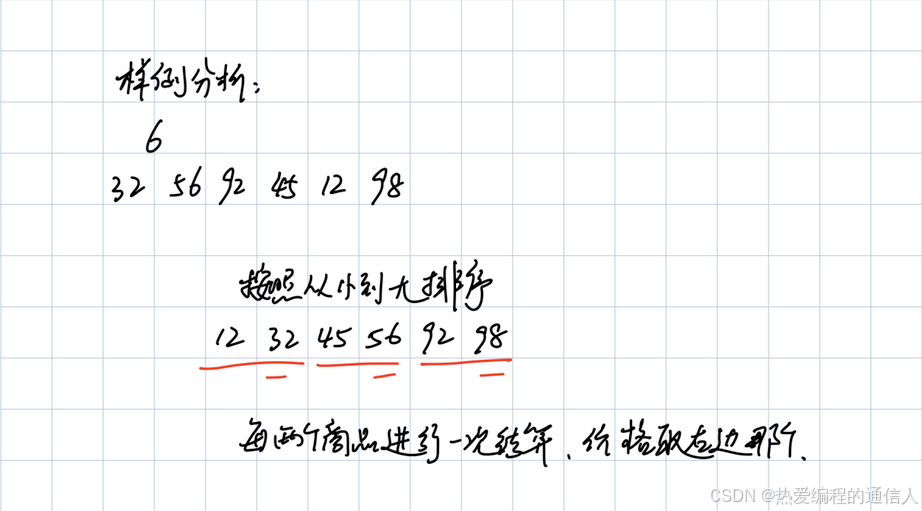 样例分析:
6
32 56 92 45 12 98
按照从小到大排序
12 32 45 56 92 98
每两个商品进行一次结算、价格取右边那个.
CSDN @热爱编程的通信人